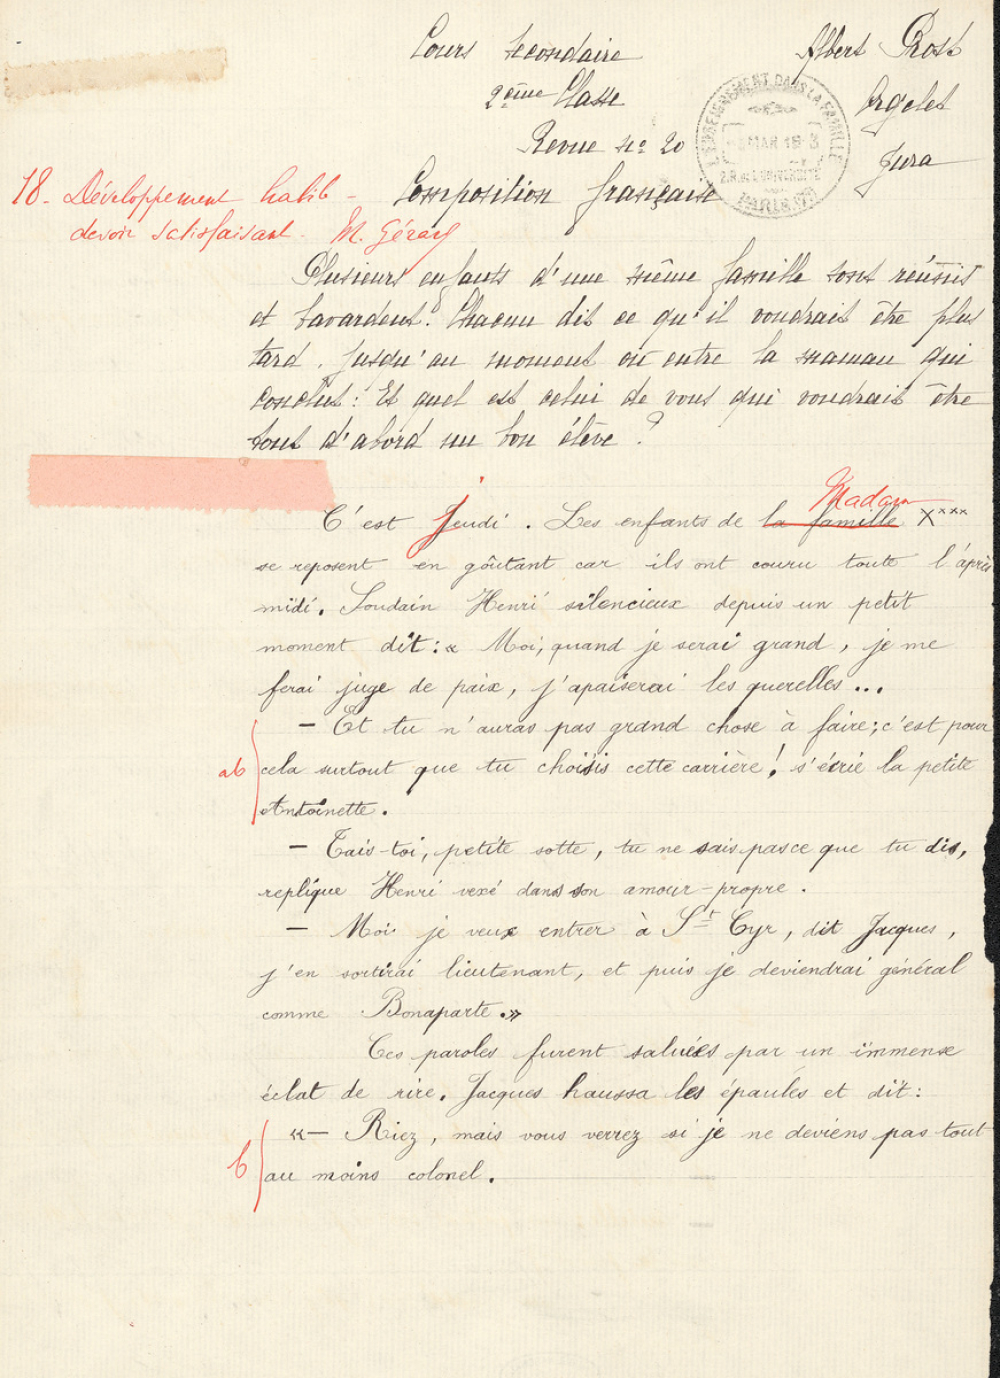 Cours secondaire
Albert Prost
2ème Classe
Orgelet
Revue nº 20
Jura
L'ENSEIGNEMENT DANS LA FAMILLE
2.R. de L'UNIVERSITÉ
PARIS
18. Développement habile -
Composition française
devoir satisfaisant. M. Gérard
Plusieurs enfants d'une même famille sont réunis
et bavardent. Chacun dit ce qu'il voudrait être plus
tard, jusqu'au moment où entre la maman qui
conclut: Et quel est celui de vous qui voudrait être
tout d'abord un bon élève ?
Madam
C'est Jeudi. Les enfants de la famille X***
se reposent en goûtant car ils ont couru toute l'après
midi. Soudain Henri silencieux depuis un petit
moment dit: « Moi, quand je serai grand, je me
ferai juge de paix, j'apaiserai les querelles...
— Et tu n'auras pas grand chose à faire; c'est pour
ab cela surtout que tu choisis cette carrière! s'écrie la petite
Antoinette.
— Tais-toi, petite sotte, tu ne sais pas ce que tu dis,
replique Henri vexé dans son amour-propre.
— Moi je veux entrer à St Cyr, dit Jacques,
j'en sortirai lieutenant, et puis je deviendrai général
comme Bonaparte.»
Ces paroles furent saluées par un immense
éclat de rire. Jacques haussa les épaules et dit:
«— Riez, mais vous verrez si je ne deviens pas tout
b au moins colonel.